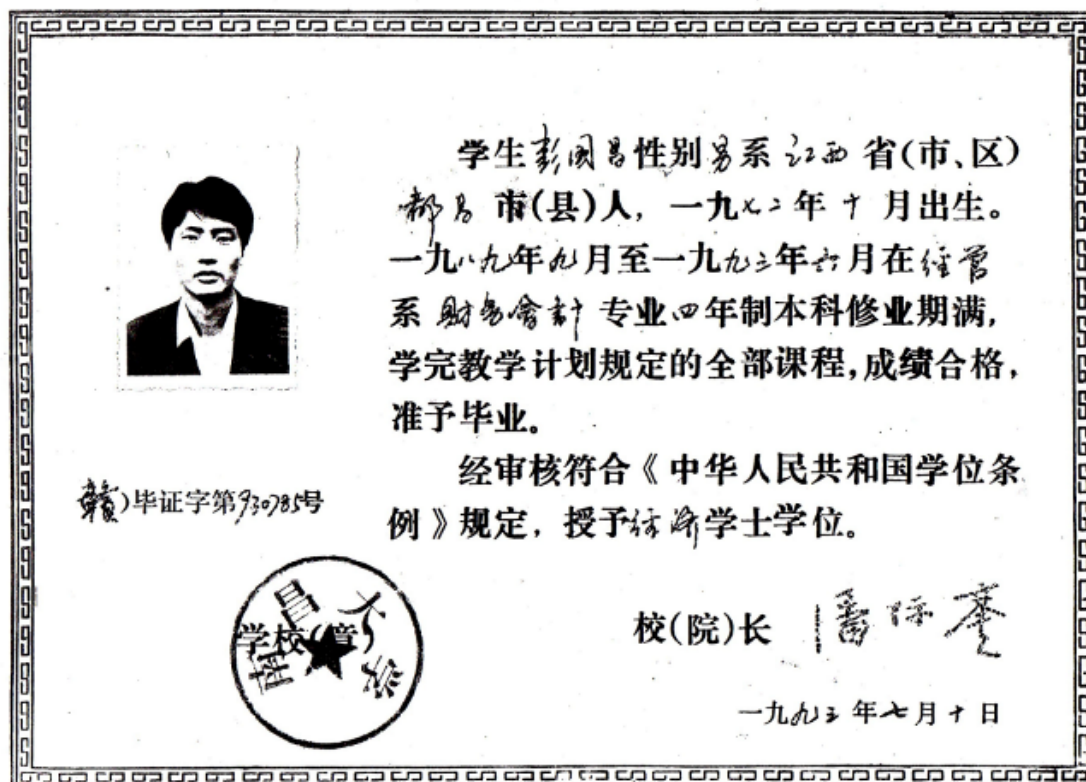 学生彭国昌性别男系江西省(市、区)
都昌市(县)人，一九七二年十月出生。
一九八九年九月至一九九三年六月在经管
系财务會計专业四年制本科修业期满，
学完教学计划规定的全部课程,成绩合格，
准予毕业。
经审核符合《中华人民共和国学位条
例》规定，授予经济学士学位。
(赣)毕证字第930785号
学校(章)
南昌大学
校(院)长 潘际銮
一九九三年七月十日